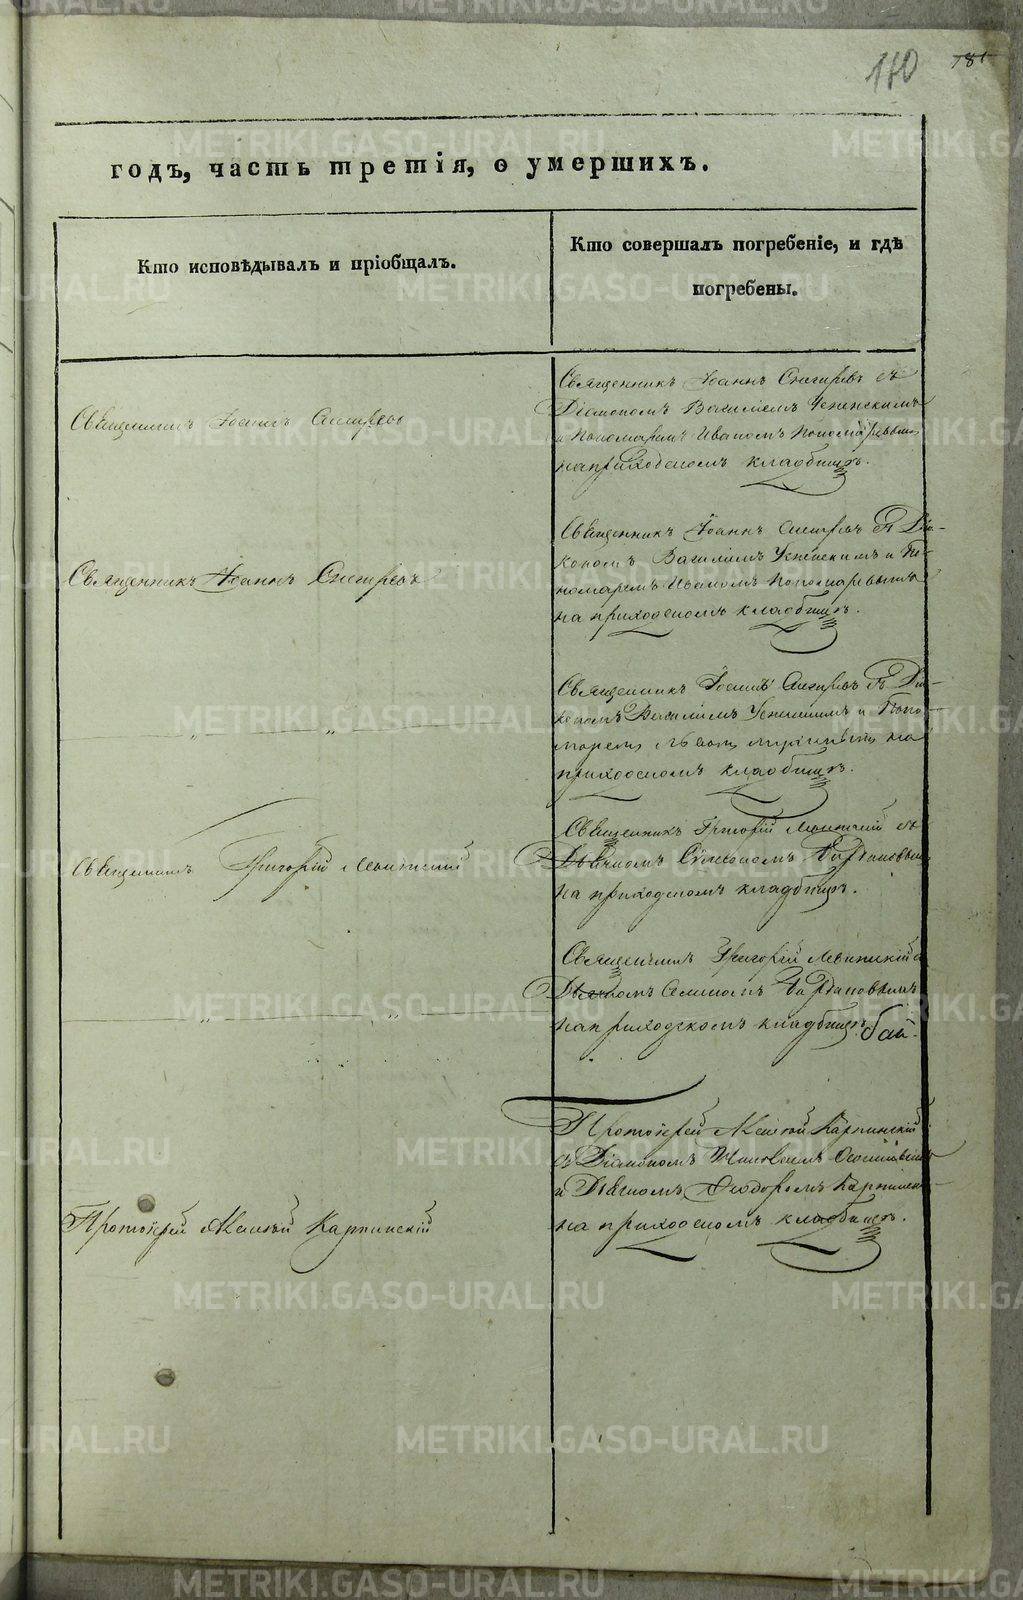 180
181
годъ, часть третія, о умершихъ.
Кто исповѣдывалъ и пріобщалъ.
Кто совершалъ погребеніе, и гдѣ
погребены.
Священникъ Іоаннъ Снегиревъ
Священникъ Іоаннъ Снегиревъ съ
Діакономъ Василіемъ Успенскимъ
и Пономаремъ Иваномъ Пономаревымъ
на приходскомъ кладбищѣ.
Священникъ Іоаннъ Снегиревъ
Священникъ Іоаннъ Снегиревъ съ Діа-
кономъ Василіемъ Успенскимъ и По-
номаремъ Иваномъ Пономаревымъ
на приходскомъ кладбищѣ.
„ „
Священникъ Іоаннъ Снегиревъ съ Діа-
кономъ Василіемъ Успенскимъ и Поно-
на
приходскомъ кладбищѣ.
Священникъ Григорій
Священникъ Григорій съ
Дьячкомъ
на приходскомъ кладбищѣ.
„ „
Священникъ Григорій
Дьячкомъ
на приходскомъ кладбищѣ.
Протоіерей Алексѣй Карпинскій
Протоіерей Алексѣй Карпинскій
съ Діакономъ
и Дьячкомъ Ѳеодоромъ
на приходскомъ кладбищѣ.
METRIKI.GASO-URAL.RU